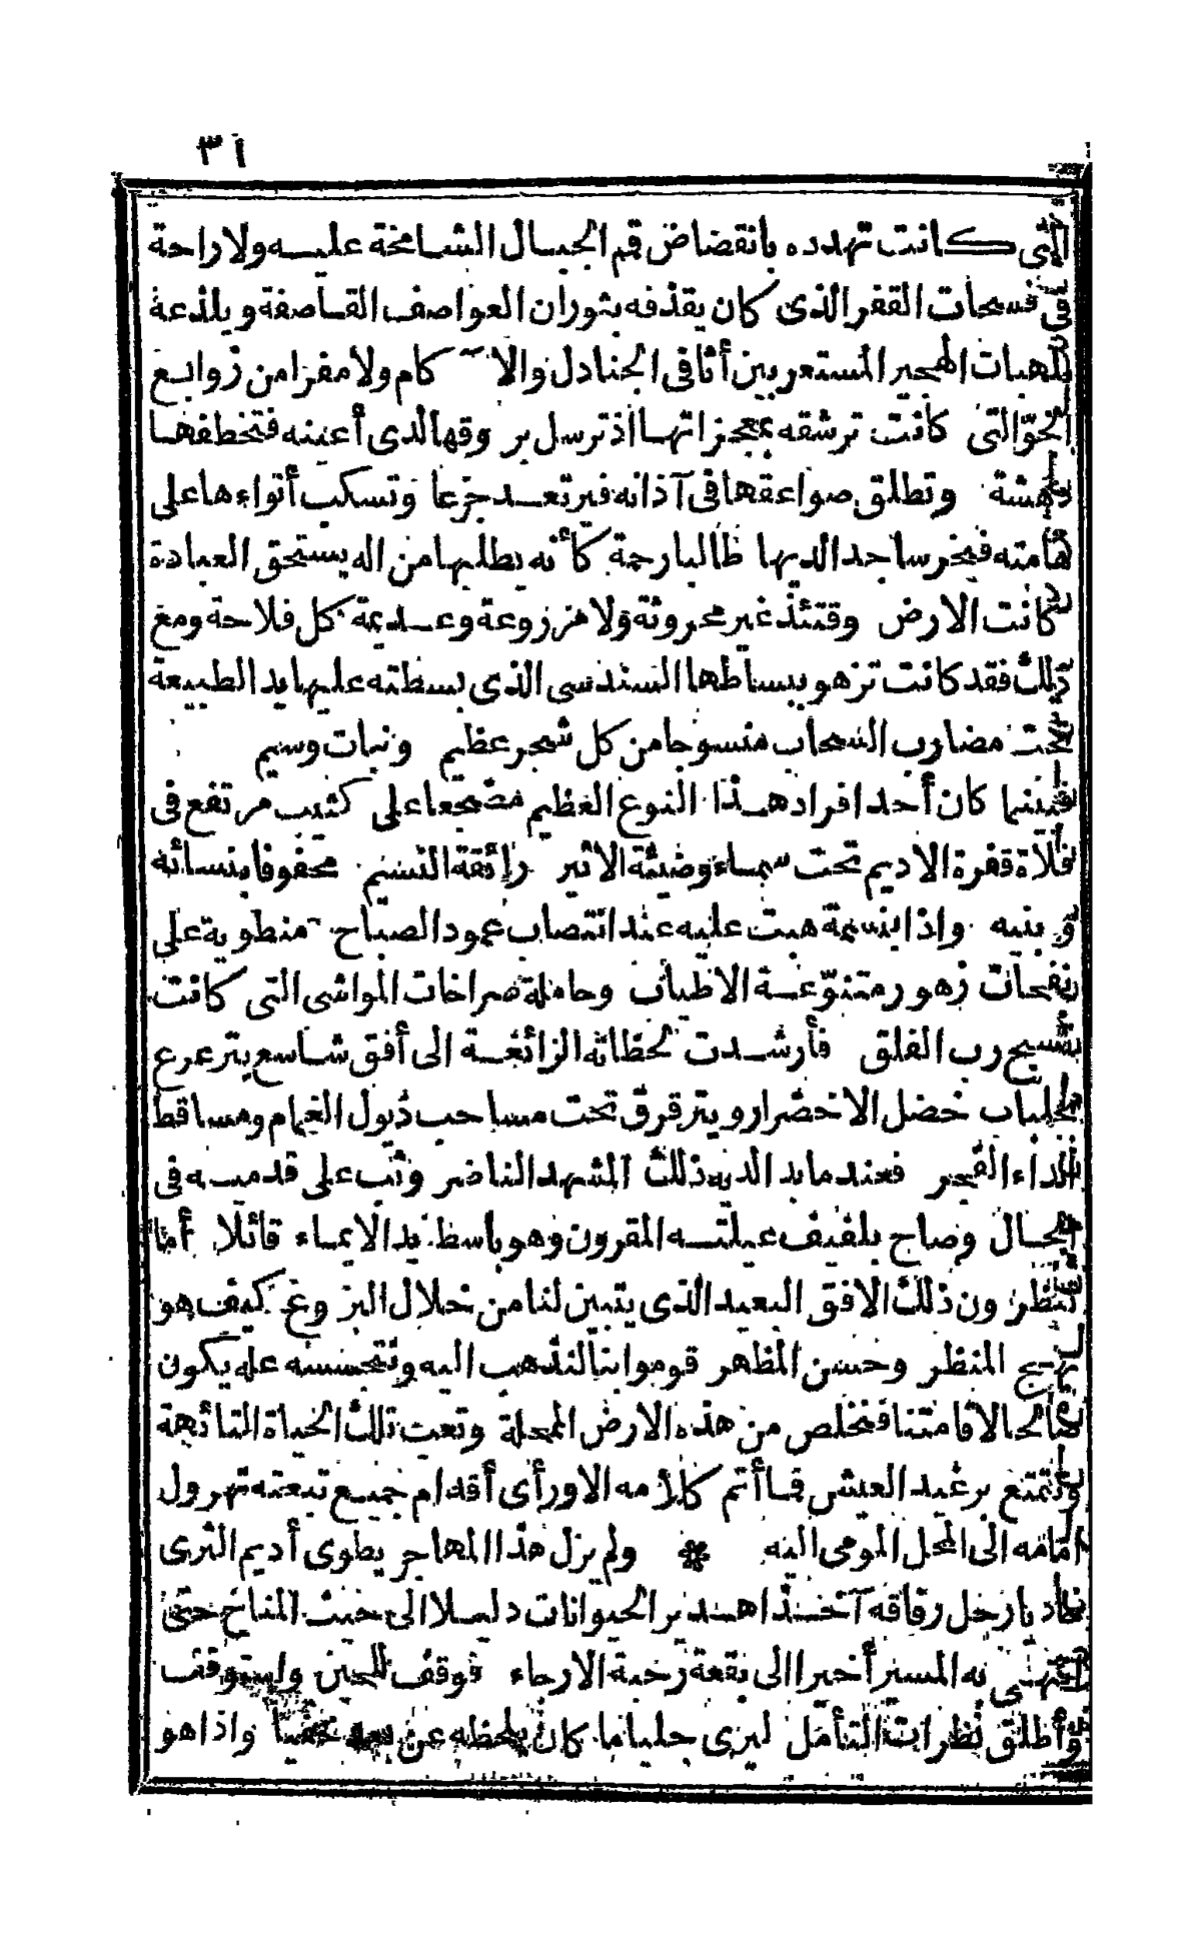 ٣١
التى كانت تهدده بانقضاض قمم الجبال الشامخة عليه ولا راحة
فى فسحات القفر الذى كان يقذفه بثوران العواصف القاصفة ويلذعه
بلهبات الهجير المستعر بين أثافى الجنادل والآكام ولا مفرا من زوابع
الجوّ التى كانت ترشقه بمعجزاتها اذ ترسل بروقها لدى أعينه فتخطفها
دهشة وتطلق صواعقها فى آذانه فيرتعد جزعا وتسكب أنواءها على
هامته فيخر ساجدا لديها طالبا رحمة كأنه يطلبها من اله يستحق العبادة
كانت الارض وقتئذ غير محروثة ولا مزروعة وعديمة كل فلاحة ومع
ذلك فقد كانت تزهو ببساطها السندسى الذى بسطته عليها يد الطبيعة
تحت مضارب السحاب منسوجا من كل شجر عظيم ونبات وسيم
فبينما كان أحد افراد هذا النوع العظيم مضجعا على كثيب مرتفع فى
فلاة قفرة الاديم تحت سماء وضيئة الاثير رائقة النسيم محفوفا بنسائه
وبنيه واذا بنسمة هبت عليه عند انتصاب عمود الصباح منطوية على
نفحات زهور متنوّعة الاطياب وحاملة صراخات المواشى التى كانت
تسبح رب الفلق فأرشدت لحظاته الزائغة الى أفق شاسع يترعرع
بجلباب خضل الاخضرار ويترقرق تحت مساحب ذيول الغمام ومساقط
أنداء الفجر فعندما بدا لديه ذلك المشهد الناضر وثب على قدميه فى
الحال وصاح بلفيف عيلته المقرون وهو باسط يد الايماء قائلا أما
تنظرون ذلك الافق البعيد الذى يتبين لنا من خلال البزوغ كيف هو
بهيج المنظر وحسن المظهر قوموا بنا لنذهب اليه ونتحسسه عله يكون
صالحا لاقامتنا فنخلص من هذه الارض المحلة وتعب تلك الحياة التائهة
ونتمتع برغيد العيش فما أتم كلامه الا ورأى أقدام جميع تبعته تهرول
أمامه الى المحل المومى اليه * ولم يزل هذا المهاجر يطوى أديم الثرى
بأرجل رفاقه آخذا هدير الحيوانات دليلا الى حيث المناخ حتى
انتهى به المسير أخيرا الى بقعة رحبة الارجاء فوقف للحين واستوقف
وأطلق نظرات التأمل ليرى جليا ما كان يلحظه عن بعد خفيا واذا هو